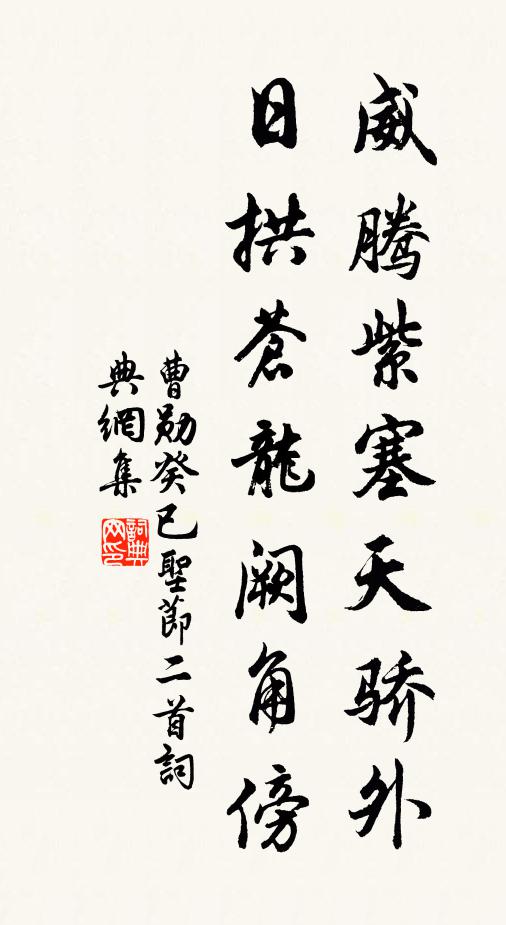 威腾紫塞天骄外
日拱蒼龍阙角傍
曹勋癸巳聖節二首詞
典網集
詞典網印